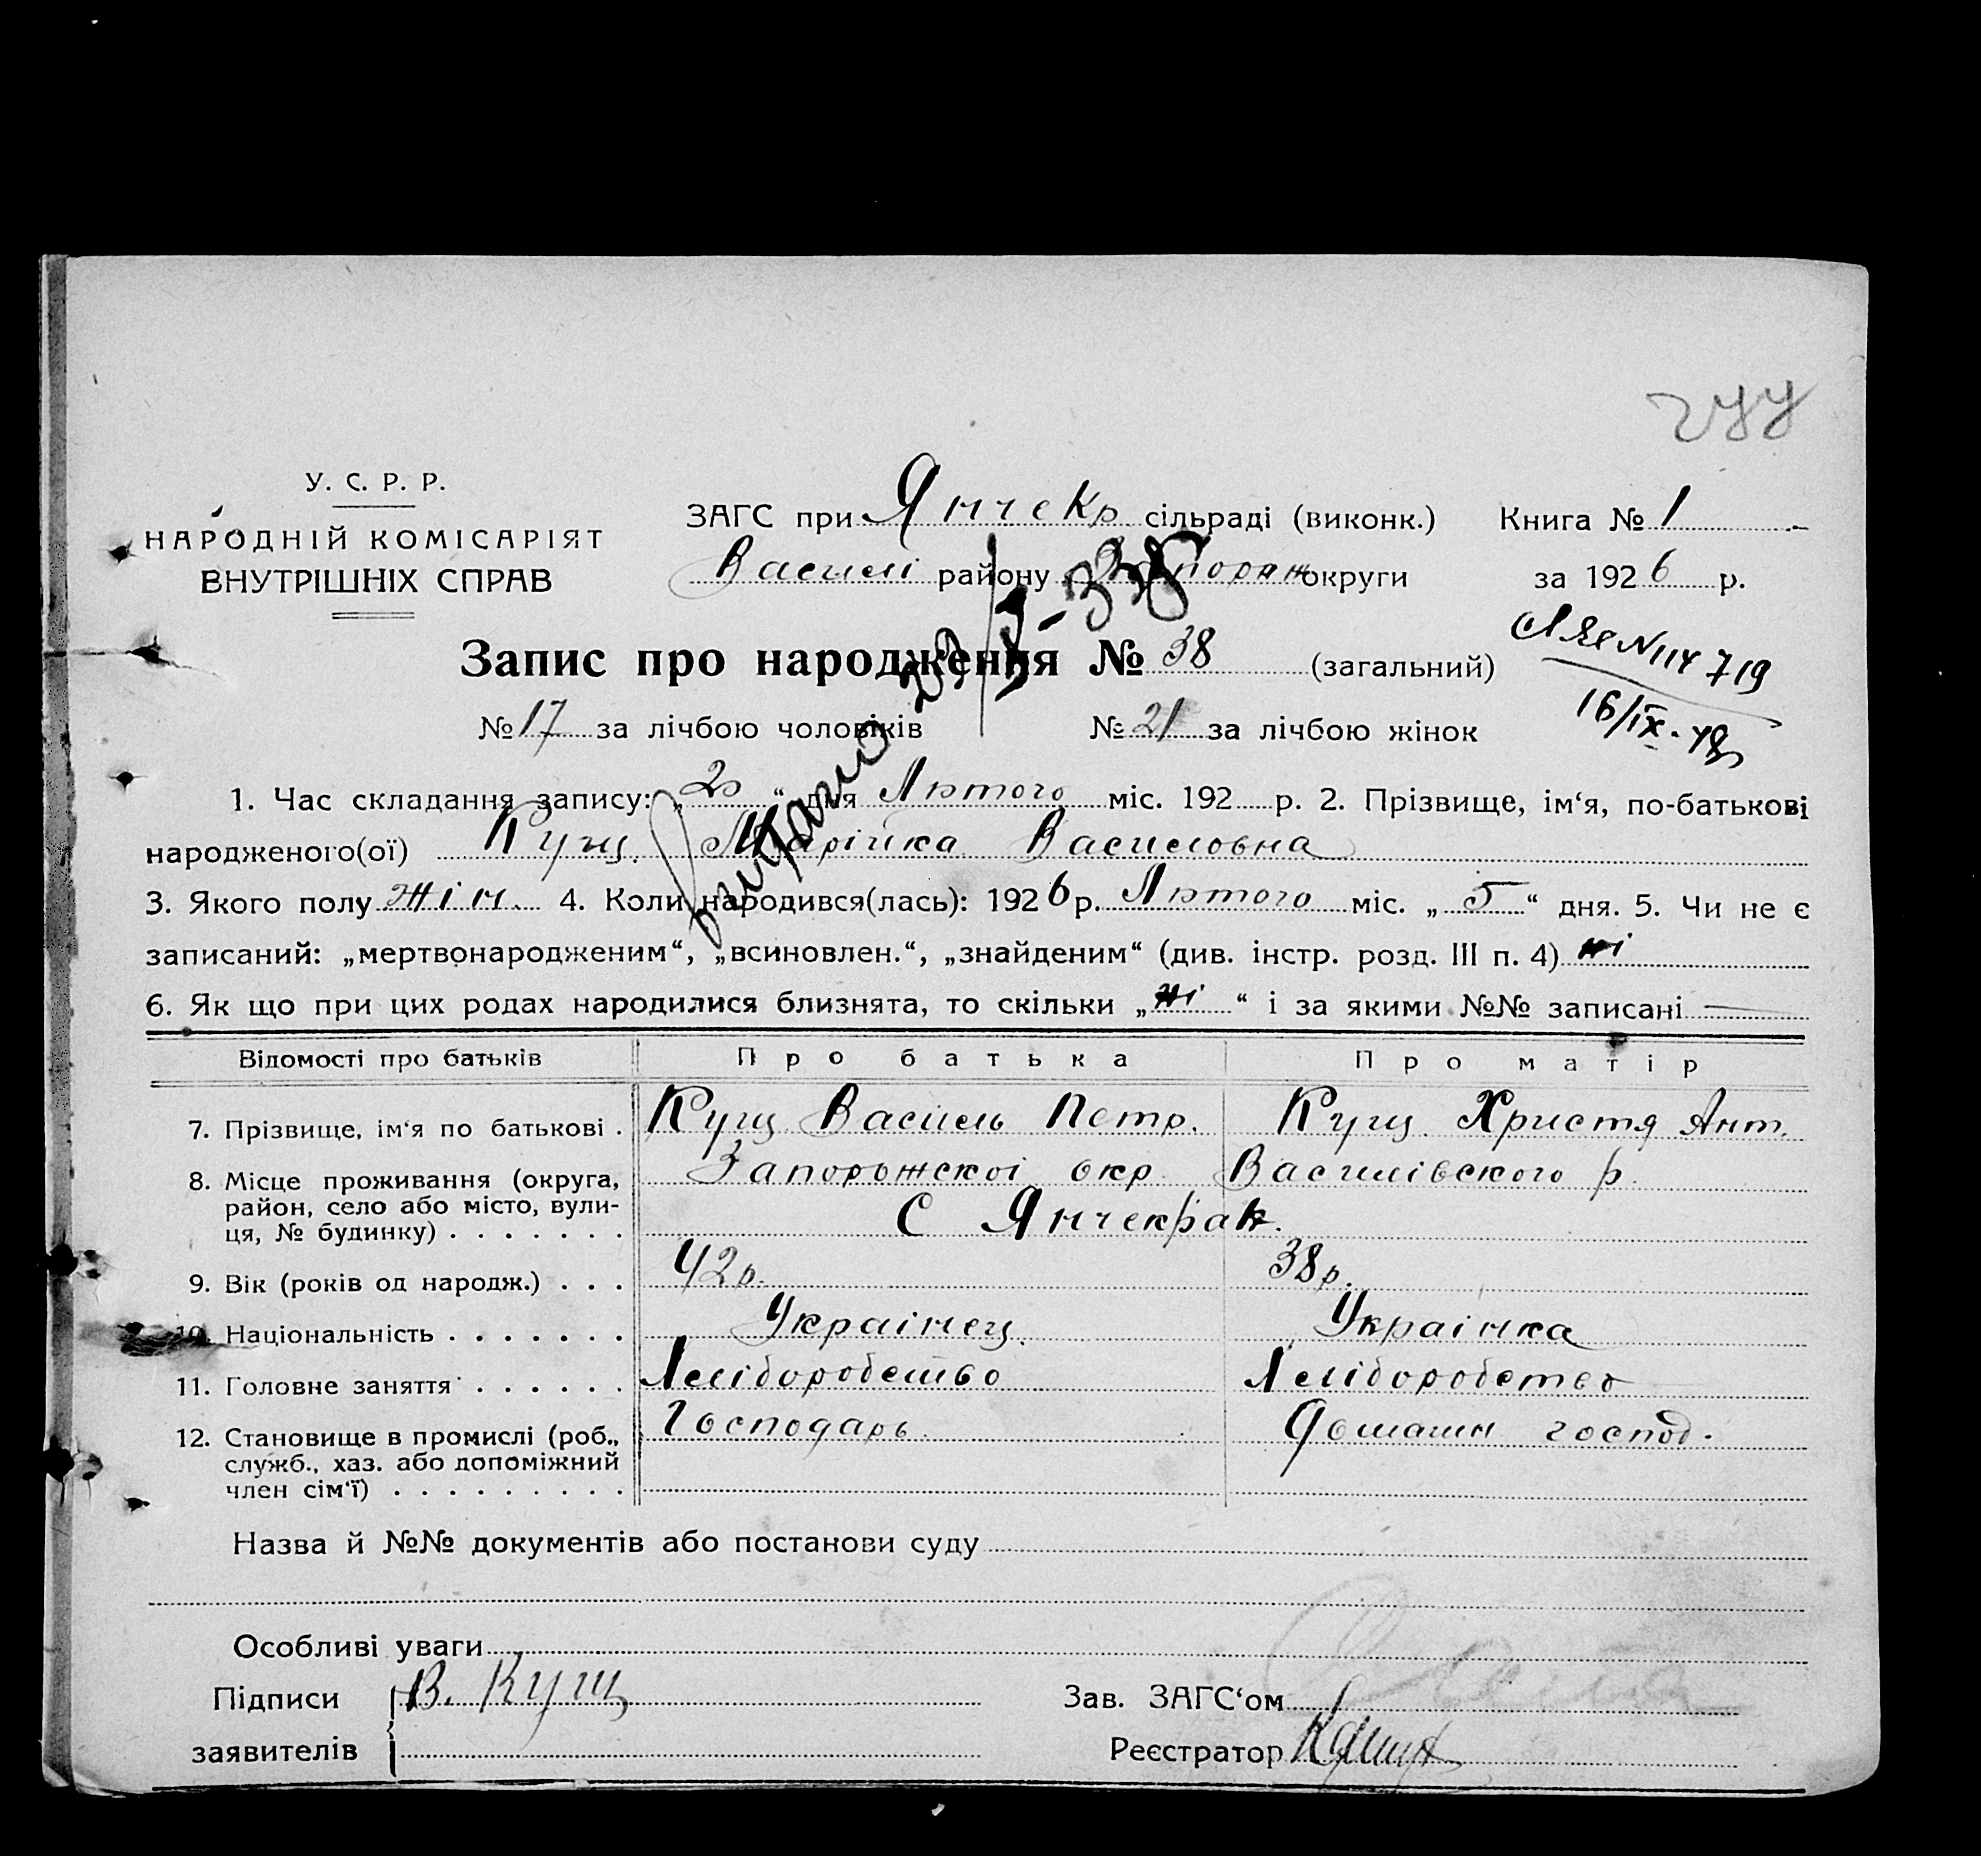 У. С. Р. Р.
НАРОДНІЙ КОМІСАРІЯТ
ВНУТРІШНІХ СПРАВ
ЗАГС при Янчекр сільраді (виконк.) Книга № 1
Василі району Запорож округи за 1926 р.
Запис про народження № 38 (загальний)
№ 17 за лічбою чоловіків № 21 за лічбою жінок
N114719
16/IX-48
1. Час складання запису: „20“ дня Лютого міс. 192 р. 2. Прізвище, ім‘я, по-батькові
народженого(ої) Кущ Марійка Василовна
3. Якого полу жін. 4. Коли народився(лась): 1926 р. Лютого міс. „5“ дня. 5. Чи не є
записаний: „мертвонародженим“, „всиновлен.“, „знайденим“ (див. інстр. розд. III п. 4) ні
6. Як що при цих родах народилися близнята, то скільки „ні“ і за якими №№ записані —
Відомості про батьків Про батька Про матір
7. Прізвище, ім‘я по батькові . Кущ Василь Петр. Кущ Христя Ант.
8. Місце проживання (округа, Запорожскоі окр Василівского р.
район, село або місто, вули-
ця, № будинку) . . . . . . . С Янчекрак.
9. Вік (років од народж.) . . . 42р. 38р.
10. Національність . . . . . . . Украінец. Украінка
11. Головне заняття . . . . . . Хліборобство Хліборобство
12. Становище в промислі (роб., Господарь Домашн господ.
служб., хаз. або допоміжний
член сім‘ї) . . . . . . . . .
Назва й №№ документів або постанови суду
Особливі уваги
Підписи В. Кущ Зав. ЗАГС‘ом
заявителів Реєстратор